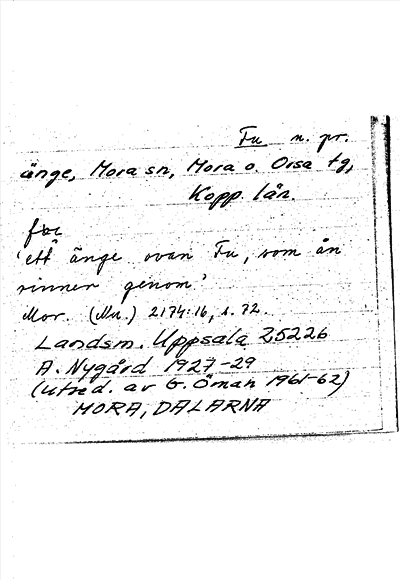 Fu n. pr.
änge, Mora sn, Mora o. Orsa tg,
Kopp. län.
'ett änge ovan Fu, som ån
rinner genom.'
Mor. (Mu.) 2174:16, s. 72.
Landsm. Uppsala 25226
A. Nygård 1927-29
(utred. av G. Öman 1961-62)
MORA, DALARNA